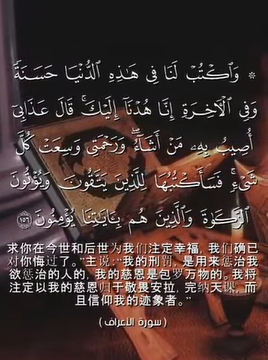 ۞ وَٱكۡتُبۡ لَنَا فِي هَٰذِهِ ٱلدُّنۡيَا حَسَنَةٗ
وَفِي ٱلۡأٓخِرَةِ إِنَّا هُدۡنَآ إِلَيۡكَۚ قَالَ عَذَابِيٓ
أُصِيبُ بِهِۦ مَنۡ أَشَآءُۖ وَرَحۡمَتِي وَسِعَتۡ كُلَّ
شَيۡءٖۚ فَسَأَكۡتُبُهَا لِلَّذِينَ يَتَّقُونَ وَيُؤۡتُونَ
ٱلزَّكَوٰةَ وَٱلَّذِينَ هُم بِـَٔايَٰتِنَا يُؤۡمِنُونَ ١٥٦
求你在今世和后世为我们注定幸福，我们确已
对你悔过了。”主说：“我的刑罚，是用来惩治我
欲惩治的人的，我的慈恩是包罗万物的。我将
注定以我的慈恩归于敬畏安拉，完纳天课，而
且信仰我的迹象者。”
( سورة الأعراف )